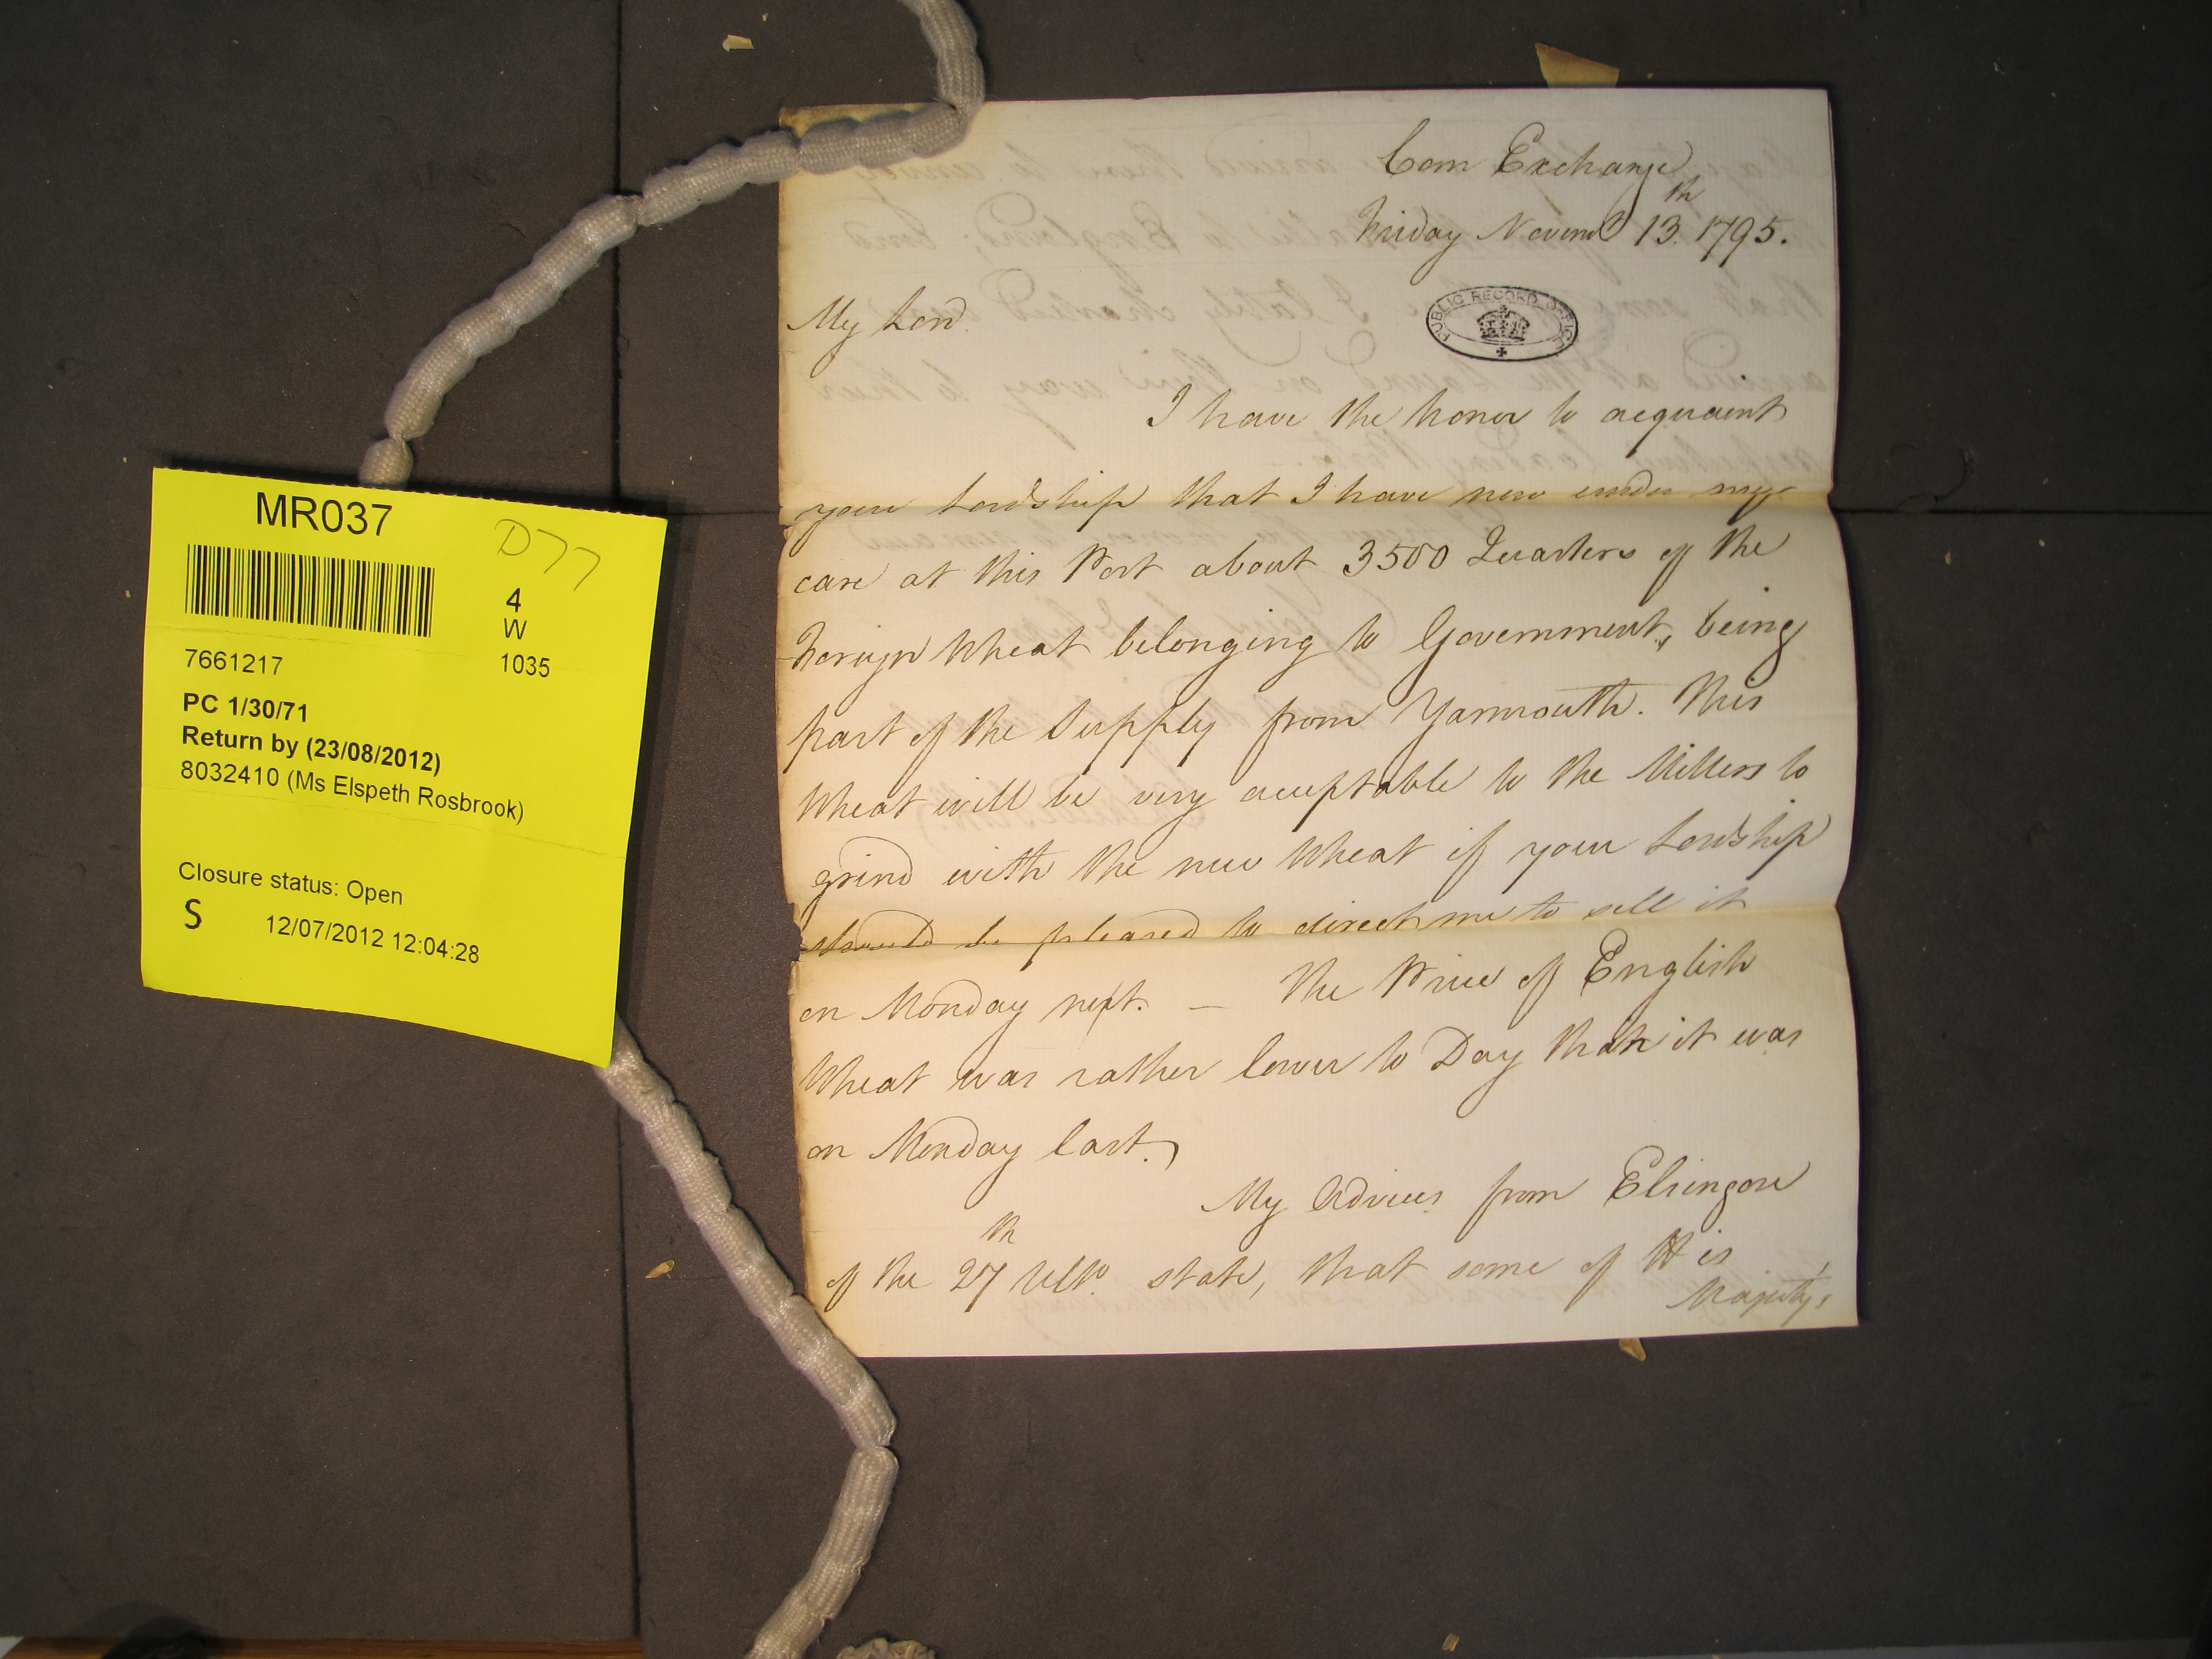 MR037
D77
4
W
1035
7661217
PC 1/30/71
Return by (23/08/2012)
8032410 (Ms Elspeth Rosbrook)
Closure status: Open
S 12/07/2012 12:04:28
Corn Exchange
Friday Novemr 13th. 1795.
PUBLIC RECORD OFFICE
My Lord
I have the honor to acquaint
your Lordship that I have now under my
care at this Port about 3500 Quarters of the
Foreign Wheat belonging to Government, being
part of the Supply from Yarmouth. This
Wheat will be very acceptable to the Millers to
grind with the new Wheat if your Lordship
should be pleased to direct me to sell it
on Monday next. — The Price of English
Wheat was rather lower to Day than it was
on Monday last.
My Advices from Elsingore
of the 27th Ulto. state, that some of His
Majesty's